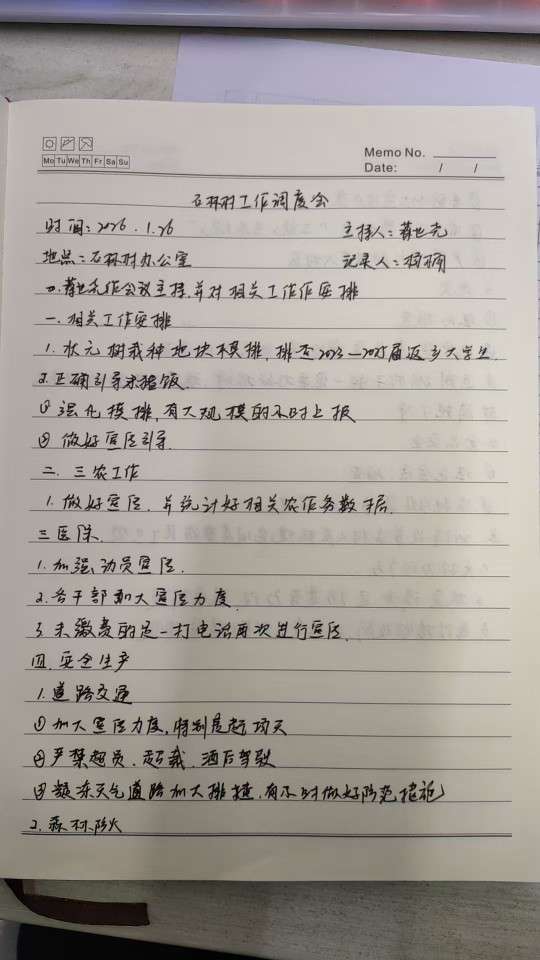 Mo Tu We Th Fr Sa Su
Memo No.
Date: / /
石林村工作调度会
时间：2026.1.26 主持人：
地点：石林村办公室 记录人：
作会议主持，并对相关工作作安排
一、相关工作安排
1. 状元树栽种地块摸排，排查2023—2025届返乡大学生.
2. 正确引导杀猪饭.
① 强化摸排，有大规模的及时上报
② 做好宣传引导.
二、三农工作
1. 做好宣传，并统计好相关农作务数据.
三 医保.
1. 加强动员宣传.
2. 各干部加大宣传力度.
3 未缴费的是一打电话再次进行宣传.
四. 安全生产
1. 道路交通
① 加大宣传力度，特别是赶场天
② 严禁超员、超载、酒后驾驶
③ 凝冻天气道路加大排查，有不时做好防范措施
2. 森林防火